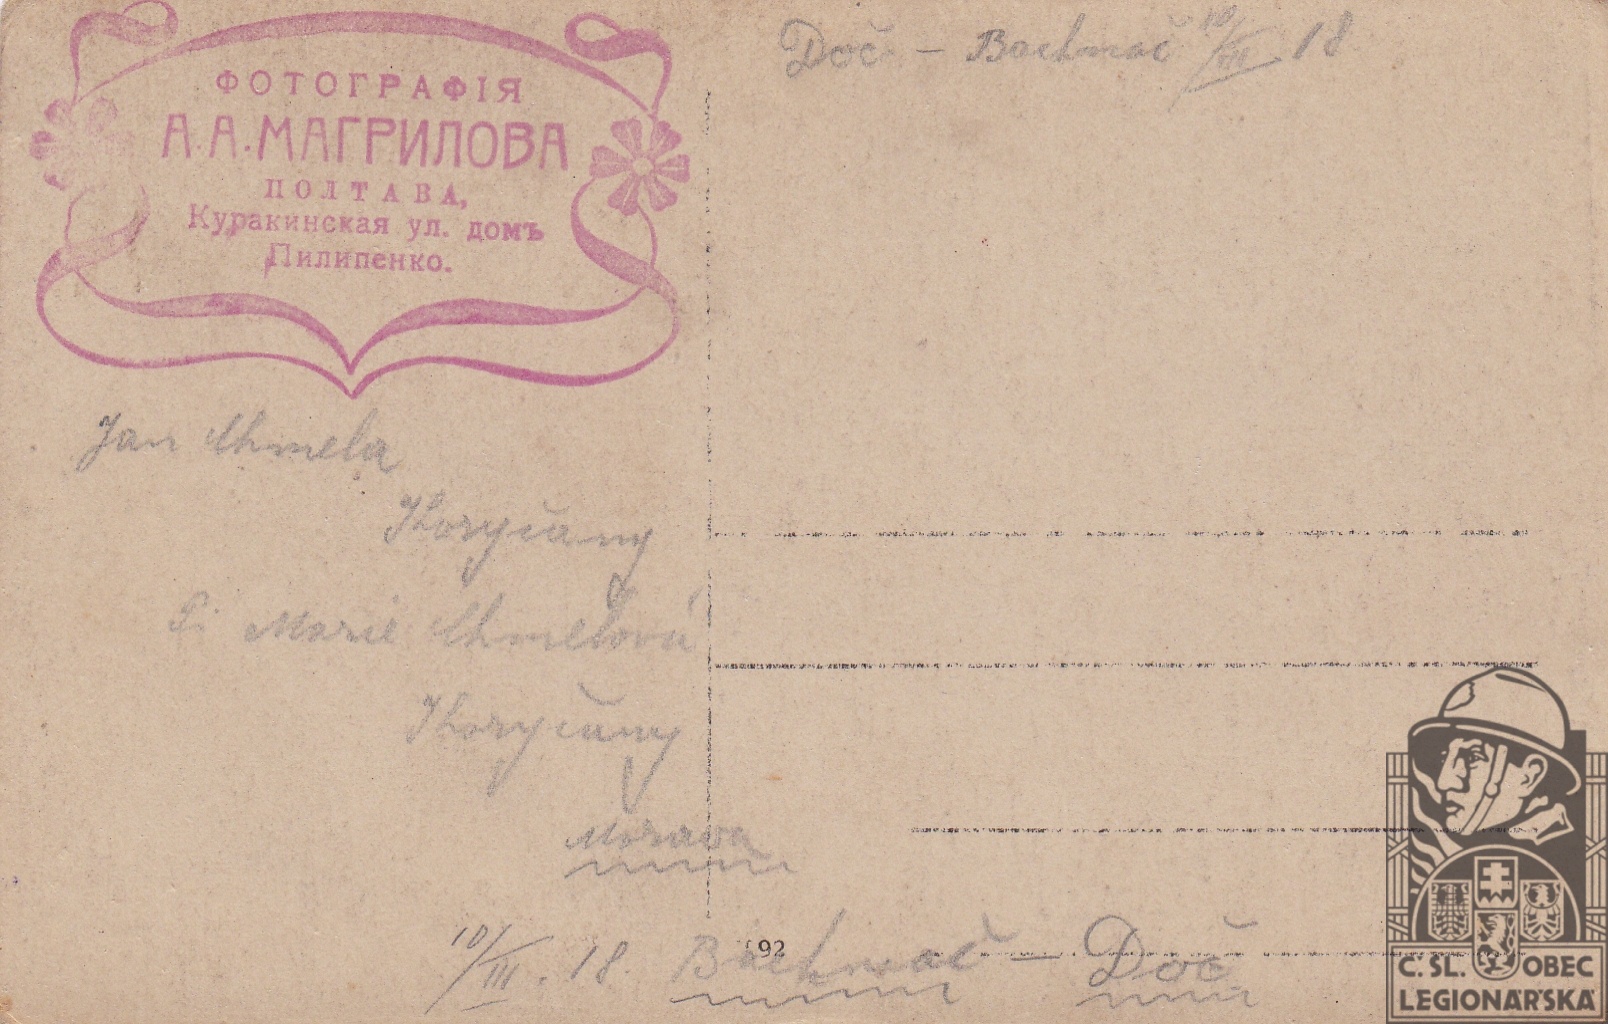 Doč - Bachmač 10/III 18
ФОТОГРАФІЯ
А.А.МАГРИЛОВА
ПОЛТАВА,
Куракинская ул. домъ
Пилипенко.
Jan Chmela
Koryčany
Sl. Marie Chmelová
Koryčany
Morava
10/III. 18. Bachmač - Doč
92
Č. SL. OBEC
LEGIONÁŘSKÁ